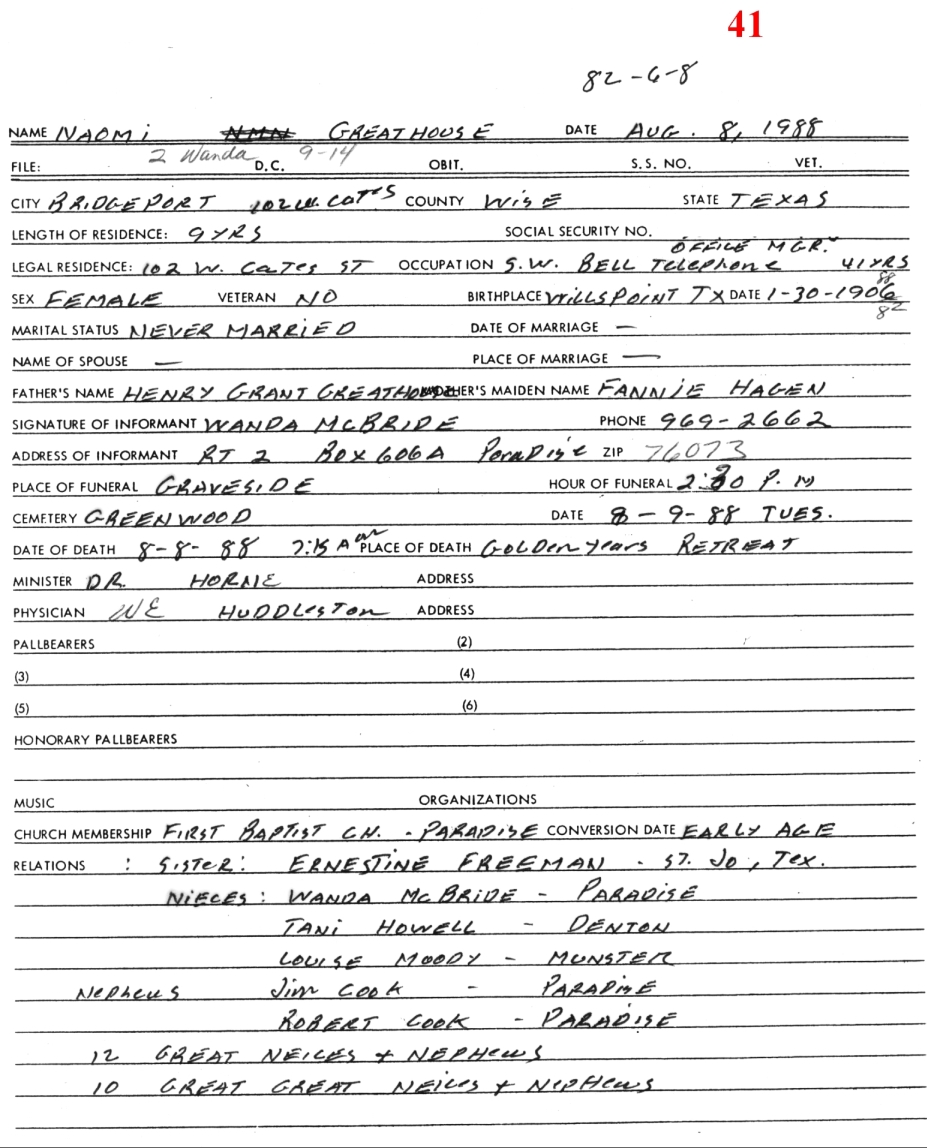 41
82-6-8
NAME NAOMI NMN GREATHOUSE DATE AUG. 8, 1988
2 Wanda 9-14
FILE: D.C. OBIT. S.S. NO. VET.
CITY BRIDGEPORT 102 W. CATES COUNTY WISE STATE TEXAS
LENGTH OF RESIDENCE: 9 YRS SOCIAL SECURITY NO.
OFFICE MGR.
LEGAL RESIDENCE: 102 W. CATES ST OCCUPATION S.W. BELL TELEPHONE 41 YRS
88
SEX FEMALE VETERAN NO BIRTHPLACE WILLS POINT TX DATE 1-30-1906
82
MARITAL STATUS NEVER MARRIED DATE OF MARRIAGE —
NAME OF SPOUSE — PLACE OF MARRIAGE —
FATHER'S NAME HENRY GRANT GREATHOUSE MOTHER'S MAIDEN NAME FANNIE HAGEN
SIGNATURE OF INFORMANT WANDA MCBRIDE PHONE 969-2662
ADDRESS OF INFORMANT RT 2 BOX 606A Paradise ZIP 76073
PLACE OF FUNERAL GRAVESIDE HOUR OF FUNERAL P. M
CEMETERY GREENWOOD DATE 8-9-88 TUES.
DATE OF DEATH 8-8-88 7:15 A am PLACE OF DEATH Golden Years RETREAT
MINISTER DR. HORNE ADDRESS
PHYSICIAN WE HUDDLESTON ADDRESS
PALLBEARERS (2)
(3) (4)
(5) (6)
HONORARY PALLBEARERS
MUSIC ORGANIZATIONS
CHURCH MEMBERSHIP FIRST BAPTIST CH. - PARADISE CONVERSION DATE EARLY AGE
RELATIONS : SISTER: ERNESTINE FREEMAN - ST. JO, TEX.
NIECES: WANDA MCBRIDE - PARADISE
TANI HOWELL - DENTON
LOUISE MOODY - MUNSTER
Nepheus Jim COOK - PARADISE
ROBERT COOK - PARADISE
12 GREAT NEICES + NEPHEWS
10 GREAT GREAT NEICES + NEPHEWS